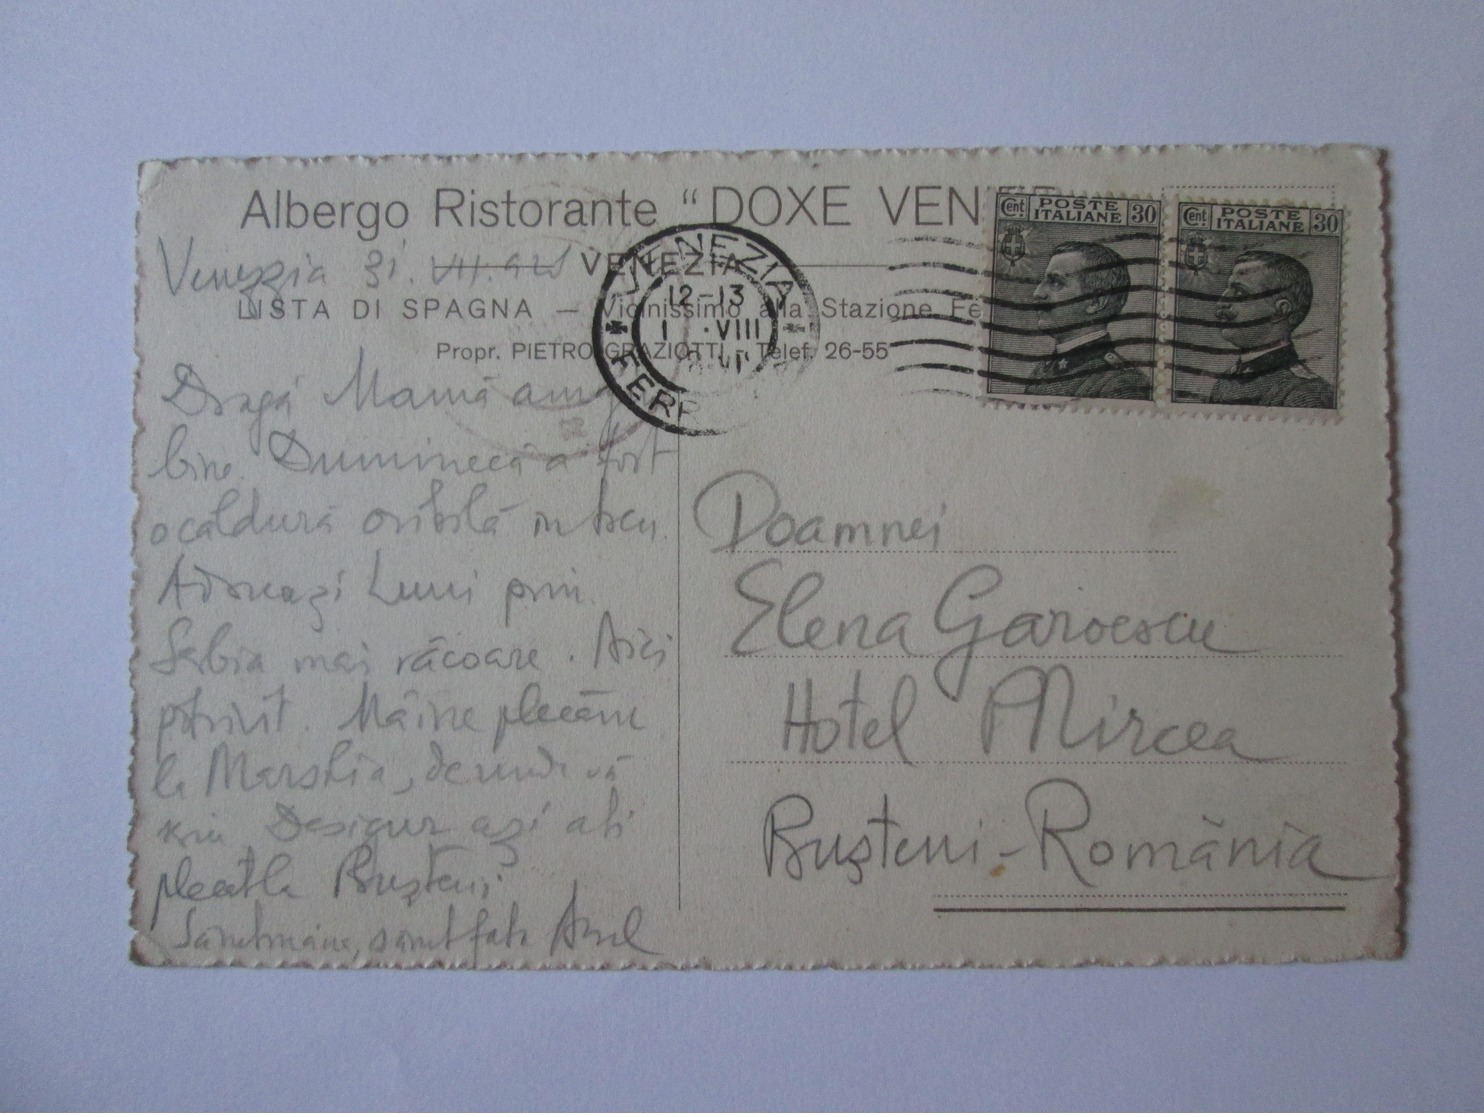 Albergo Ristorante “DOXE VEN
VENEZIA
LISTA DI SPAGNA — Vicinissimo alla Stazione Fe
Propr. PIETRO GRAZIOTTI - Telef. 26-55
Venezia 31. VII.
VENEZIA
12-13
1 ·VIII
FERR
Cent POSTE ITALIANE 30
Cent POSTE ITALIANE 30
Dragă Mamă
bine. Duminecă a fost
o căldură oribilă în tren.
Astăzi Luni prin
Serbia mai răcoare. Aici
potrivit. Mâine plecăm
la Marsilia, de unde vă
scriu. Desigur azi ați
plecat la Bușteni
Sărutmâna, sărut fata
Doamnei
Elena Garoescu
Hotel Mircea
Bușteni - România